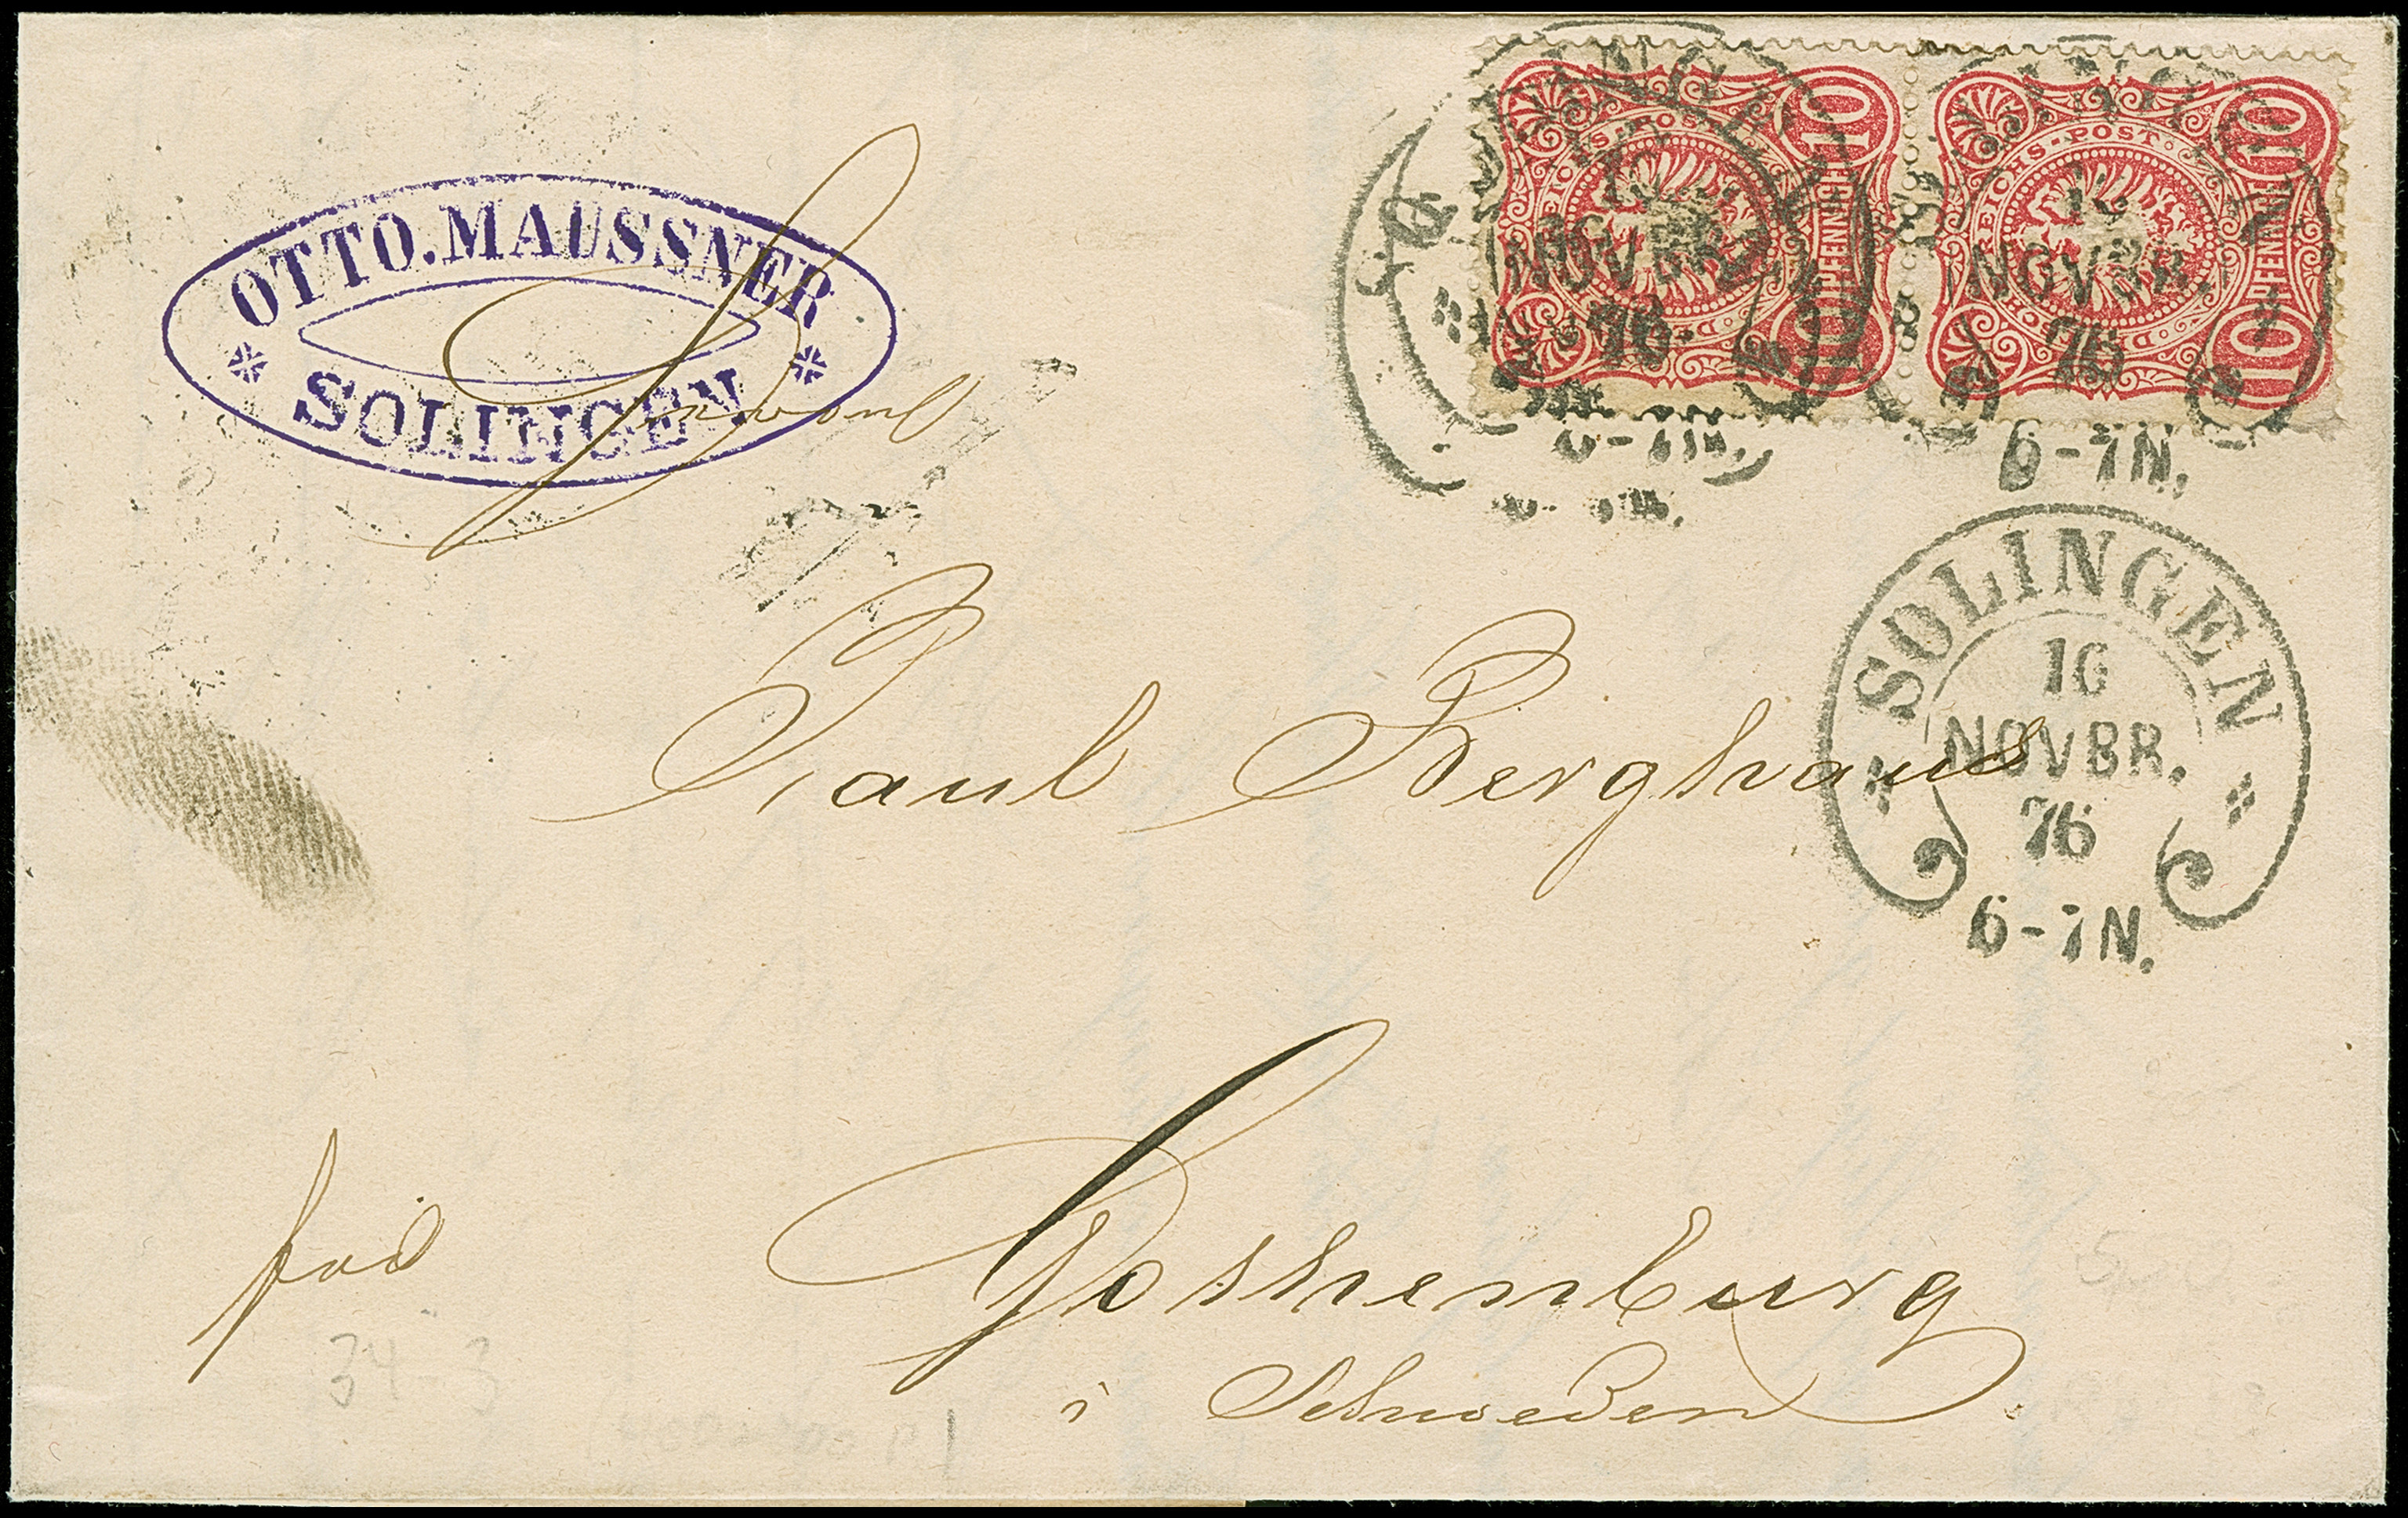 OTTO. MAUSSNER
SOLINGEN
REICHS-POST
10
PFENNIGE
10
REICHS-POST
10
PFENNIGE
10
16
NOVBR.
76
6-7N.
SOLINGEN
16
NOVBR.
76
6-7N.
Paul Berghaus
Gothenburg
i Schweden
frco
34-3